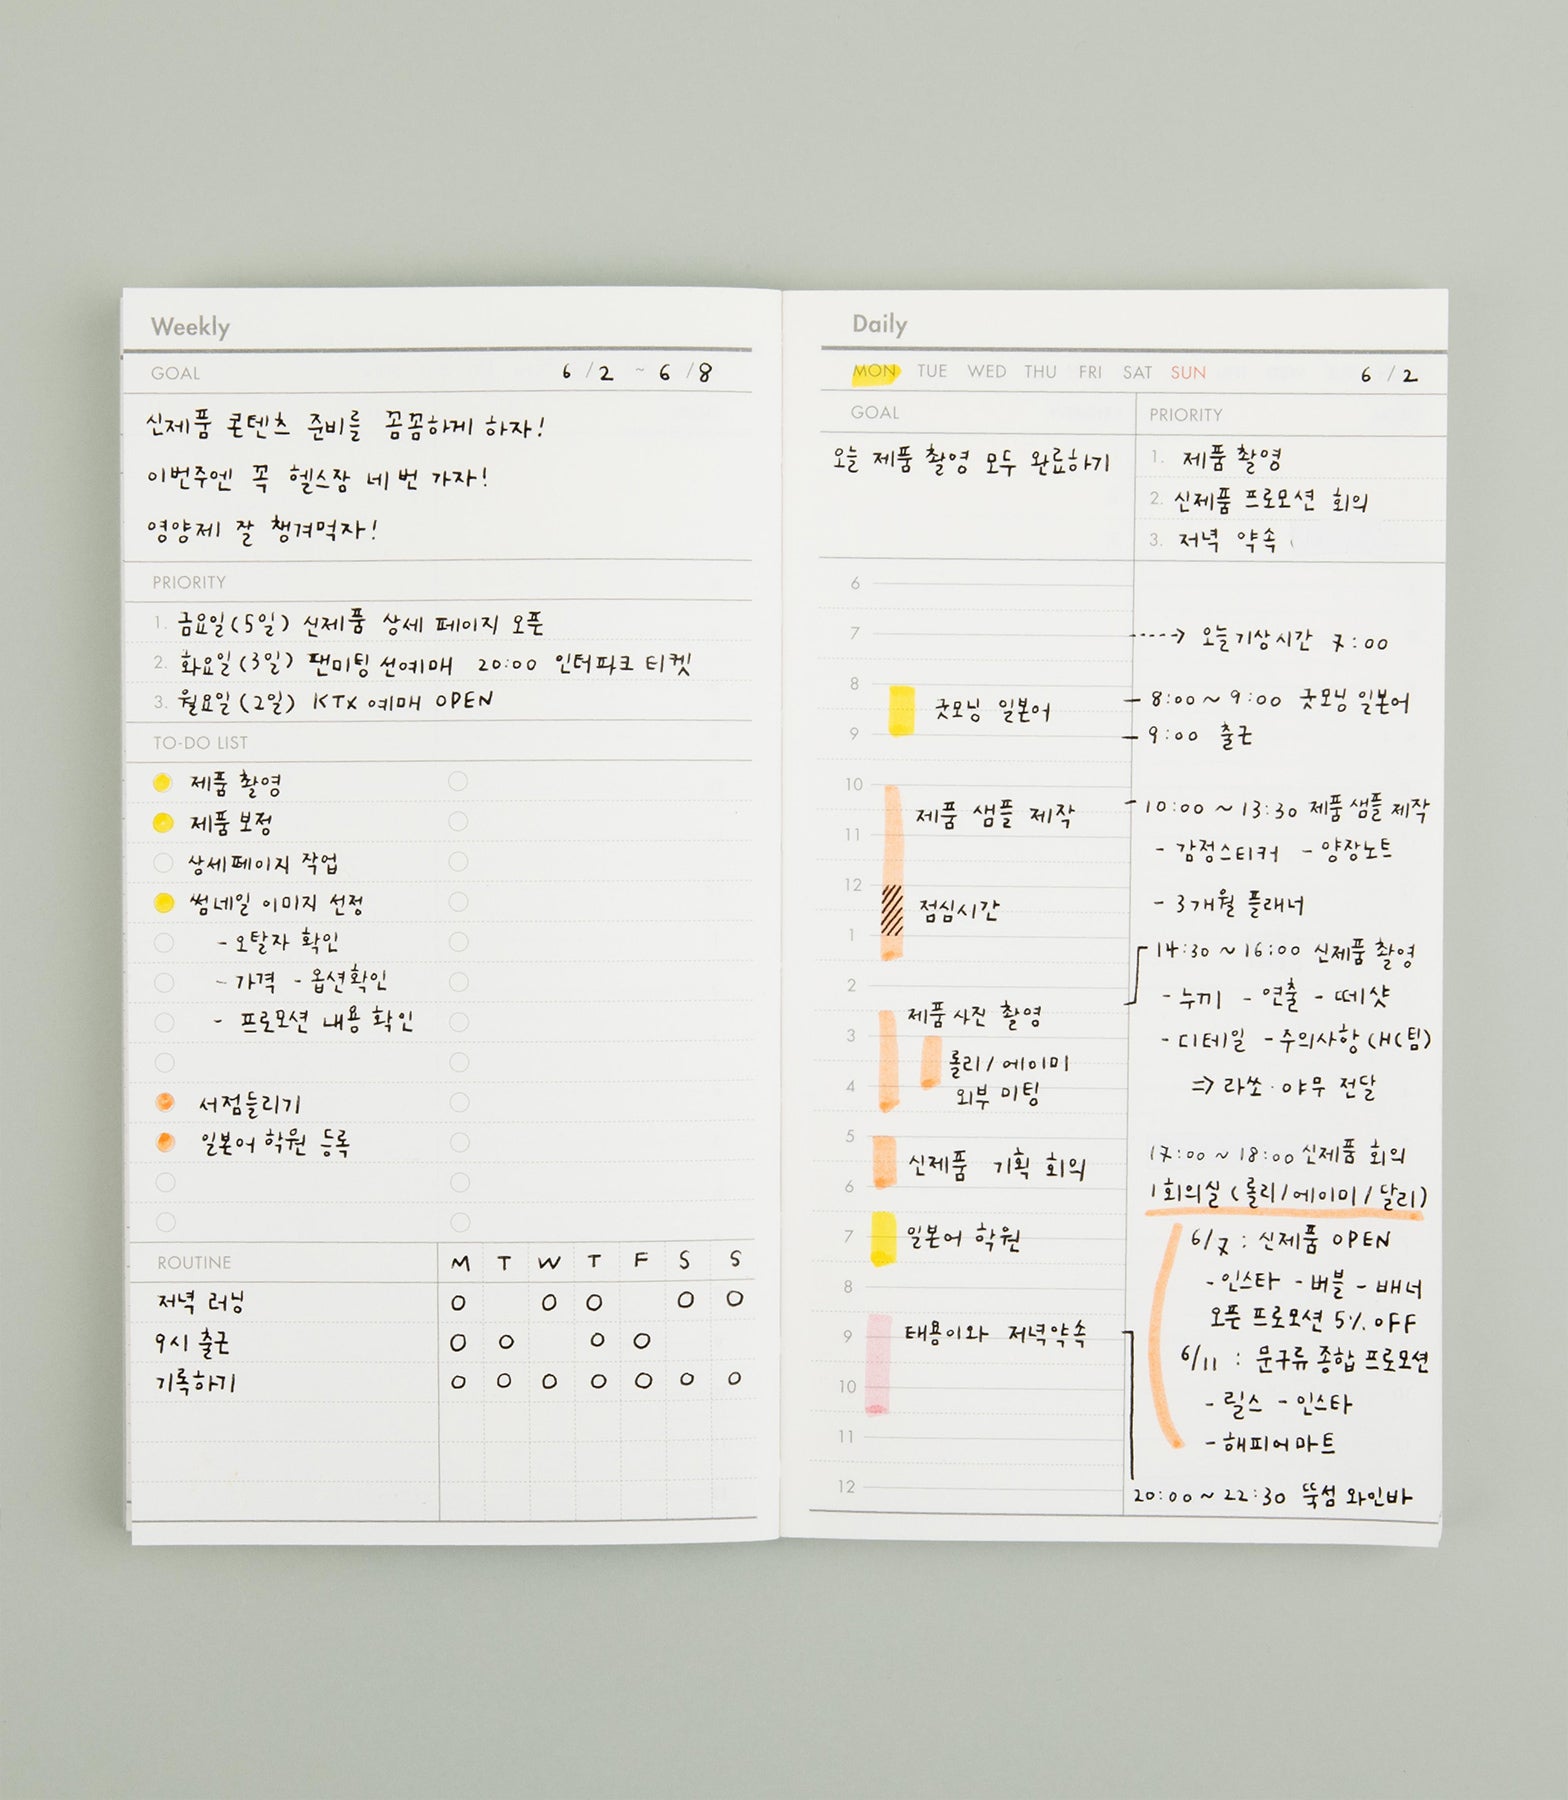 Weekly
GOAL 6/2 ~ 6/8
신제품 콘텐츠 준비를 꼼꼼하게 하자!
이번주엔 꼭 헬스장 네번 가자!
영양제 잘 챙겨먹자!
PRIORITY
1. 금요일(5일) 신제품 상세 페이지 오픈
2. 화요일(3일) 팬미팅 선예매 20:00 인터파크 티켓
3. 월요일(2일) KTX 예매 OPEN
TO-DO LIST
제품 촬영
제품 보정
상세페이지 작업
썸네일 이미지 선정
- 오탈자 확인
- 가격 - 옵션확인
- 프로모션 내용 확인
서점들리기
일본어 학원 등록
ROUTINE M T W T F S S
저녁 러닝 O O O O O
9시 출근 O O O O
기록하기 O O O O O O O
Daily
MON TUE WED THU FRI SAT SUN 6/2
GOAL
오늘 제품 촬영 모두 완료하기
PRIORITY
1. 제품 촬영
2. 신제품 프로모션 회의
3. 저녁 약속
6
7
8
굿모닝 일본어
9
10
제품 샘플 제작
11
12
점심시간
1
2
제품사진 촬영
3
롤리/에이미
4
외부 미팅
5
신제품 기획 회의
6
7 일본어 학원
8
9 태용이와 저녁약속
10
11
12
----> 오늘기상시간 7:00
- 8:00 ~ 9:00 굿모닝 일본어
- 9:00 출근
- 10:00 ~ 13:30 제품샘플 제작
- 감정스티커 - 양장노트
- 3개월 플래너
14:30 ~ 16:00 신제품 촬영
- 누끼 - 연출 - 떼샷
- 디테일 - 주의사항(HC팀)
=> 라쏘·야무 전달
17:00 ~ 18:00 신제품 회의
1회의실 (롤리/에이미/달리)
6/7 : 신제품 OPEN
- 인스타 - 버블 - 배너
오픈 프로모션 5% OFF
6/11 : 문구류 종합 프로모션
- 릴스 - 인스타
- 해피어마트
20:00 ~ 22:30 뚝섬 와인바